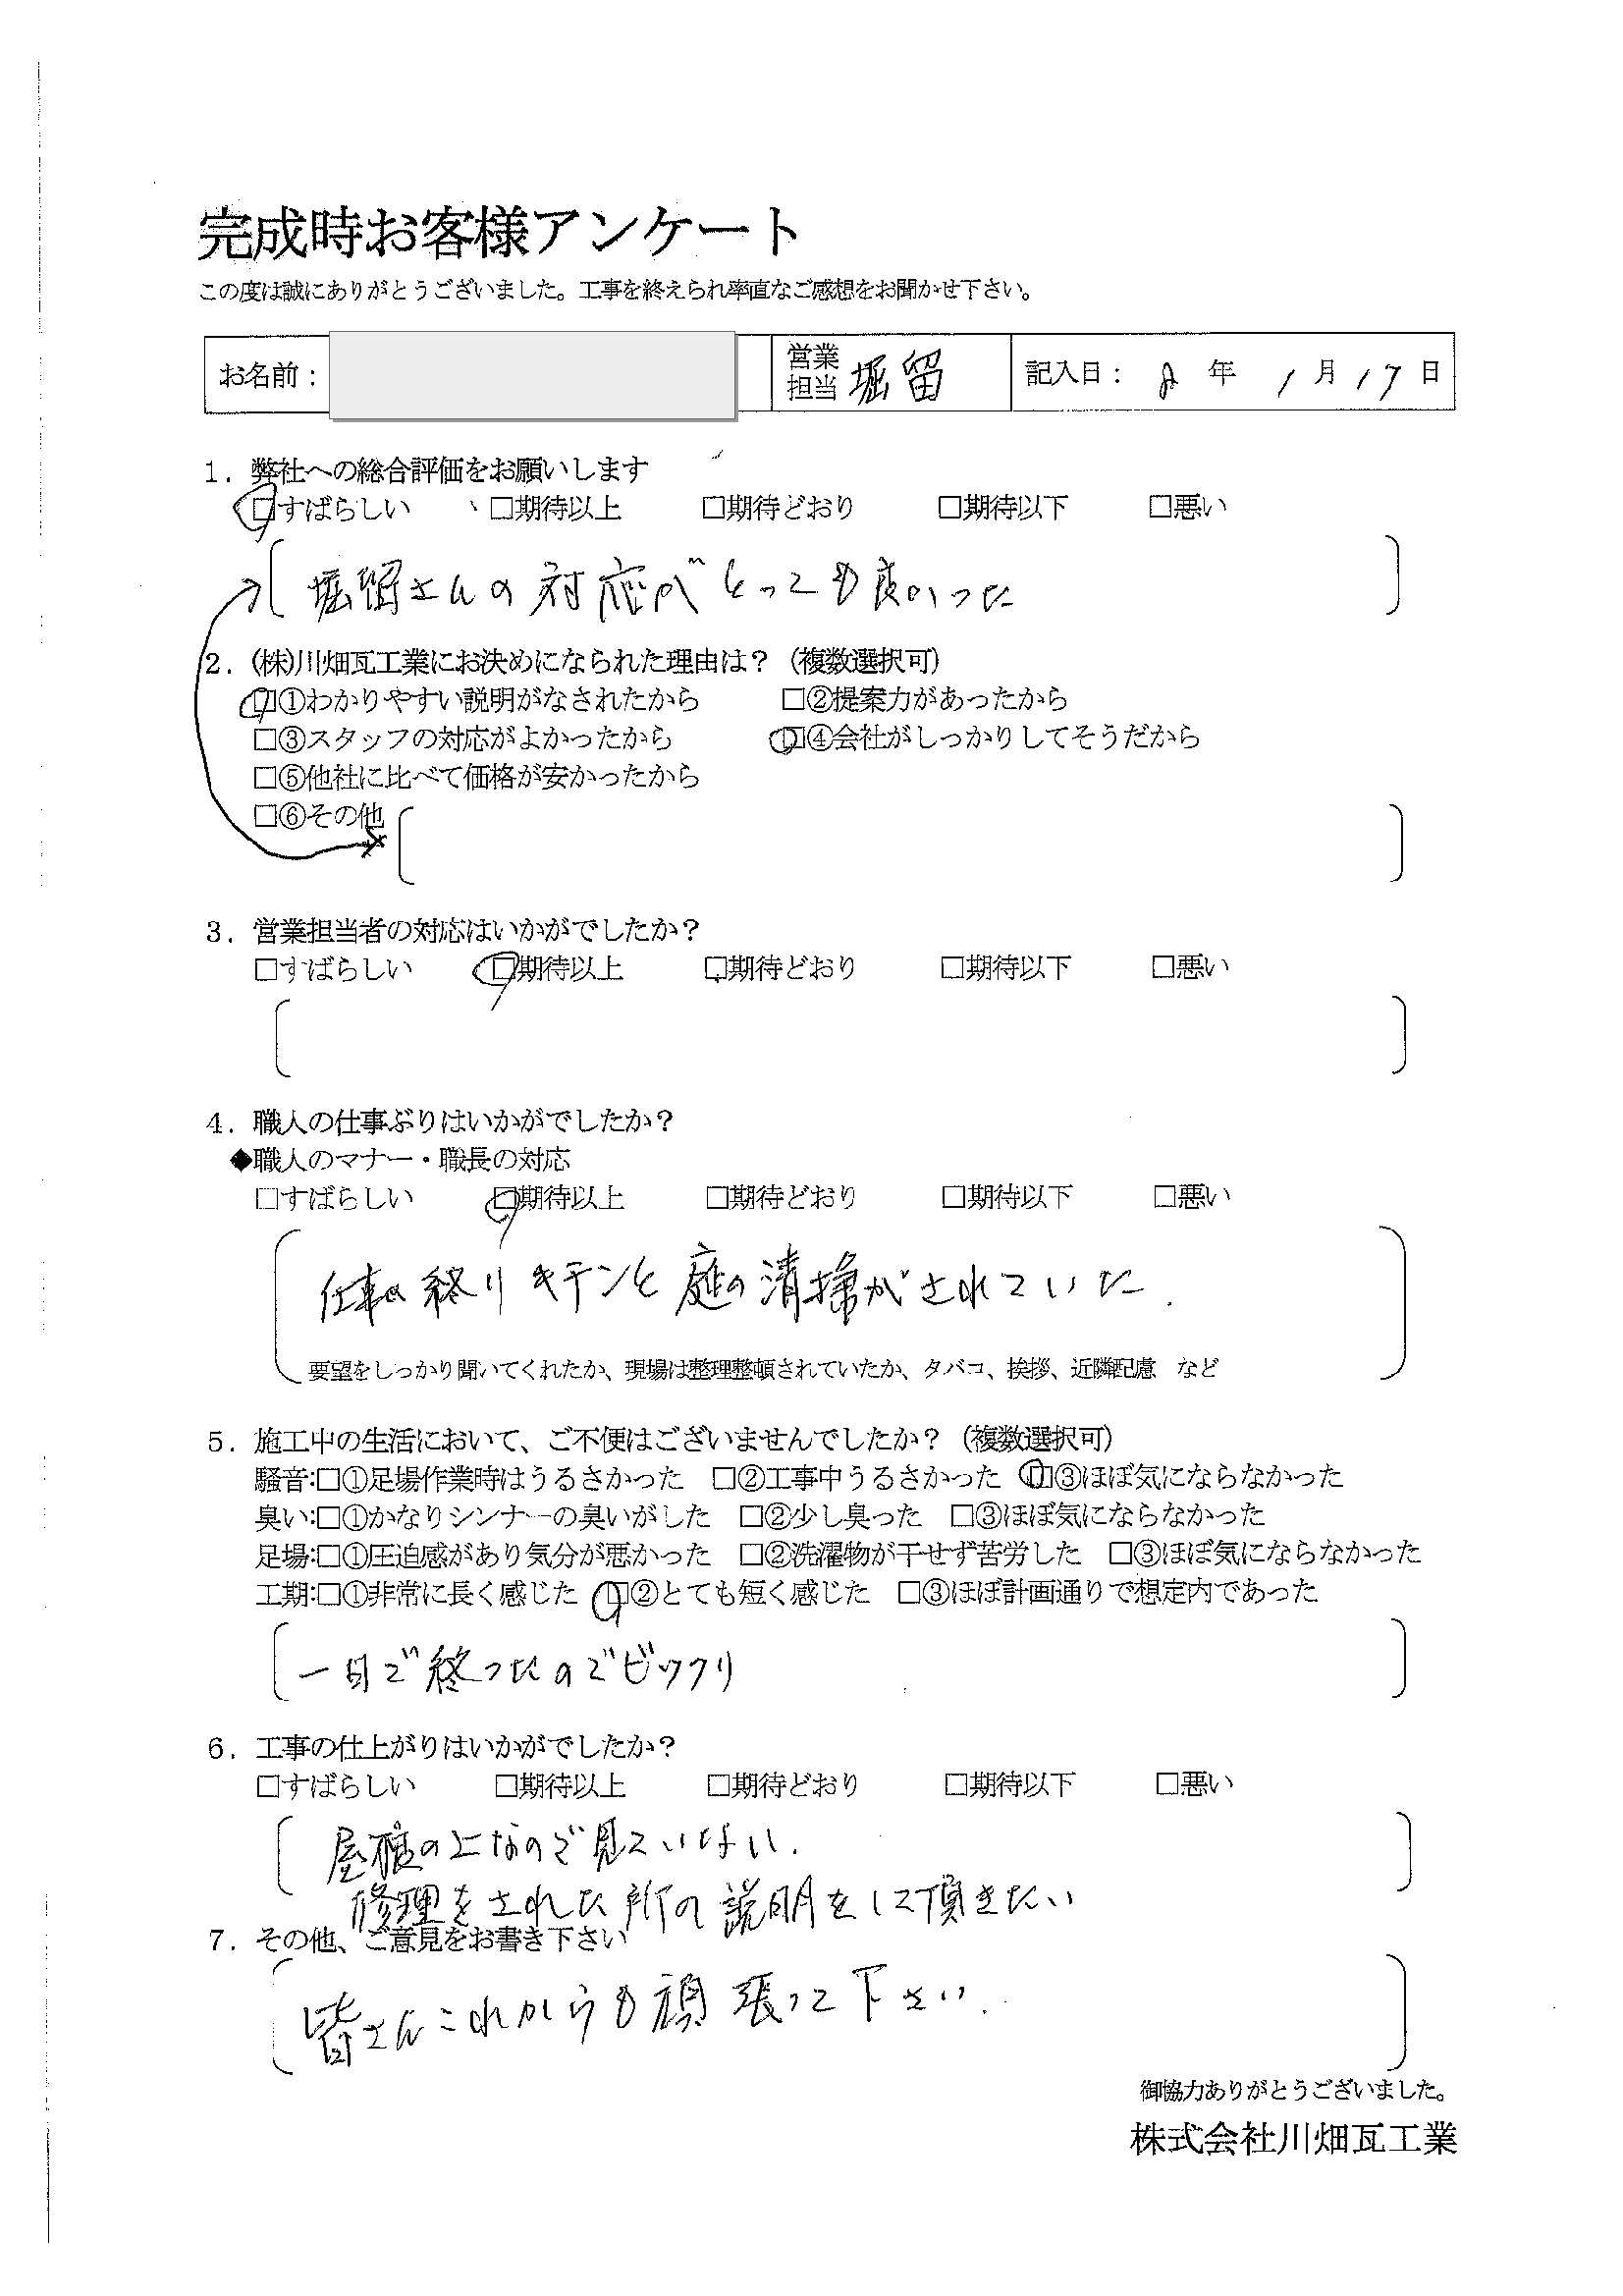 完成時お客様アンケート
この度は誠にありがとうございました。工事を終えられ率直なご感想をお聞かせ下さい。
お名前： 営業担当 堀留 記入日： 8 年 1 月 17 日
1．弊社への総合評価をお願いします
□すばらしい □期待以上 □期待どおり □期待以下 □悪い
堀留さんの対応がとっても良かった
2．(株)川畑瓦工業にお決めになられた理由は？（複数選択可）
□①わかりやすい説明がなされたから □②提案力があったから
□③スタッフの対応がよかったから □④会社がしっかりしてそうだから
□⑤他社に比べて価格が安かったから
□⑥その他
3．営業担当者の対応はいかがでしたか？
□すばらしい □期待以上 □期待どおり □期待以下 □悪い
4．職人の仕事ぶりはいかがでしたか？
◆職人のマナー・職長の対応
□すばらしい □期待以上 □期待どおり □期待以下 □悪い
仕事の終りキチンと庭の清掃がされていた．
要望をしっかり聞いてくれたか、現場は整理整頓されていたか、タバコ、挨拶、近隣配慮 など
5．施工中の生活において、ご不便はございませんでしたか？（複数選択可）
騒音:□①足場作業時はうるさかった □②工事中うるさかった □③ほぼ気にならなかった
臭い:□①かなりシンナーの臭いがした □②少し臭った □③ほぼ気にならなかった
足場:□①圧迫感があり気分が悪かった □②洗濯物が干せず苦労した □③ほぼ気にならなかった
工期:□①非常に長く感じた □②とても短く感じた □③ほぼ計画通りで想定内であった
一日で終ったのでビックリ
6．工事の仕上がりはいかがでしたか？
□すばらしい □期待以上 □期待どおり □期待以下 □悪い
屋根の上なので見ていない．
修理をされた所の説明をして頂きたい
7．その他、ご意見をお書き下さい
皆さんこれからも頑張って下さい．
御協力ありがとうございました。
株式会社川畑瓦工業